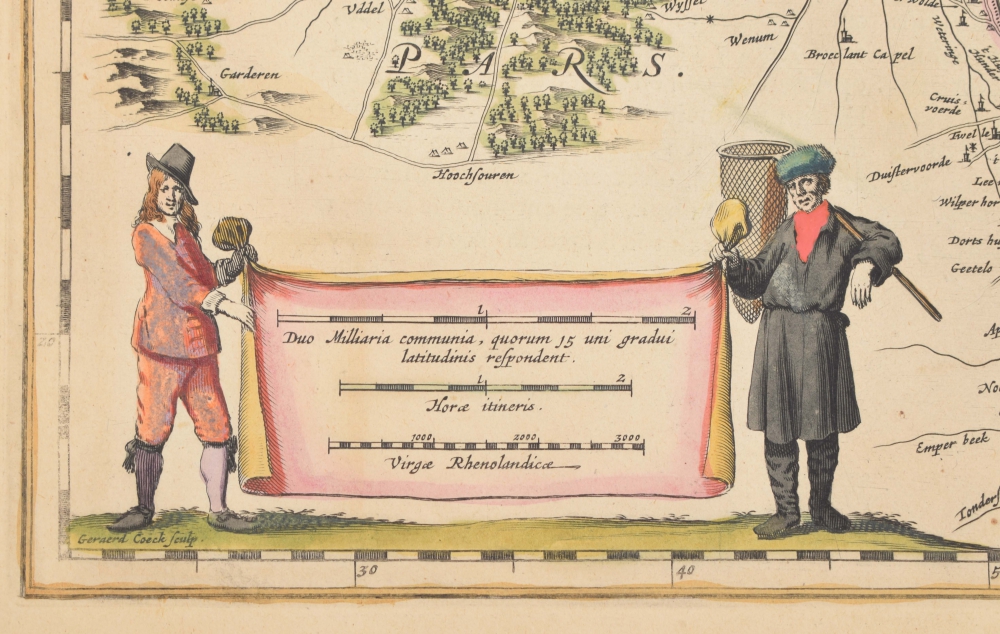 Uddel
Wyssel
Wolde
Wenum
Broeclant Capel
Weteringe
Garderen
PARS.
Cruis-
voerde
Twelle
Hoochsouren
Duistervoorde
Wilper hor
Dorts hu
Geetelo
1 2
Duo Milliaria communia, quorum 15 uni gradui
latitudinis respondent.
1 2
Horæ itineris.
1000 2000 3000
Virgæ Rhenolandicæ
Emper beek
Geraerd Coeck sculp.
30 40 5